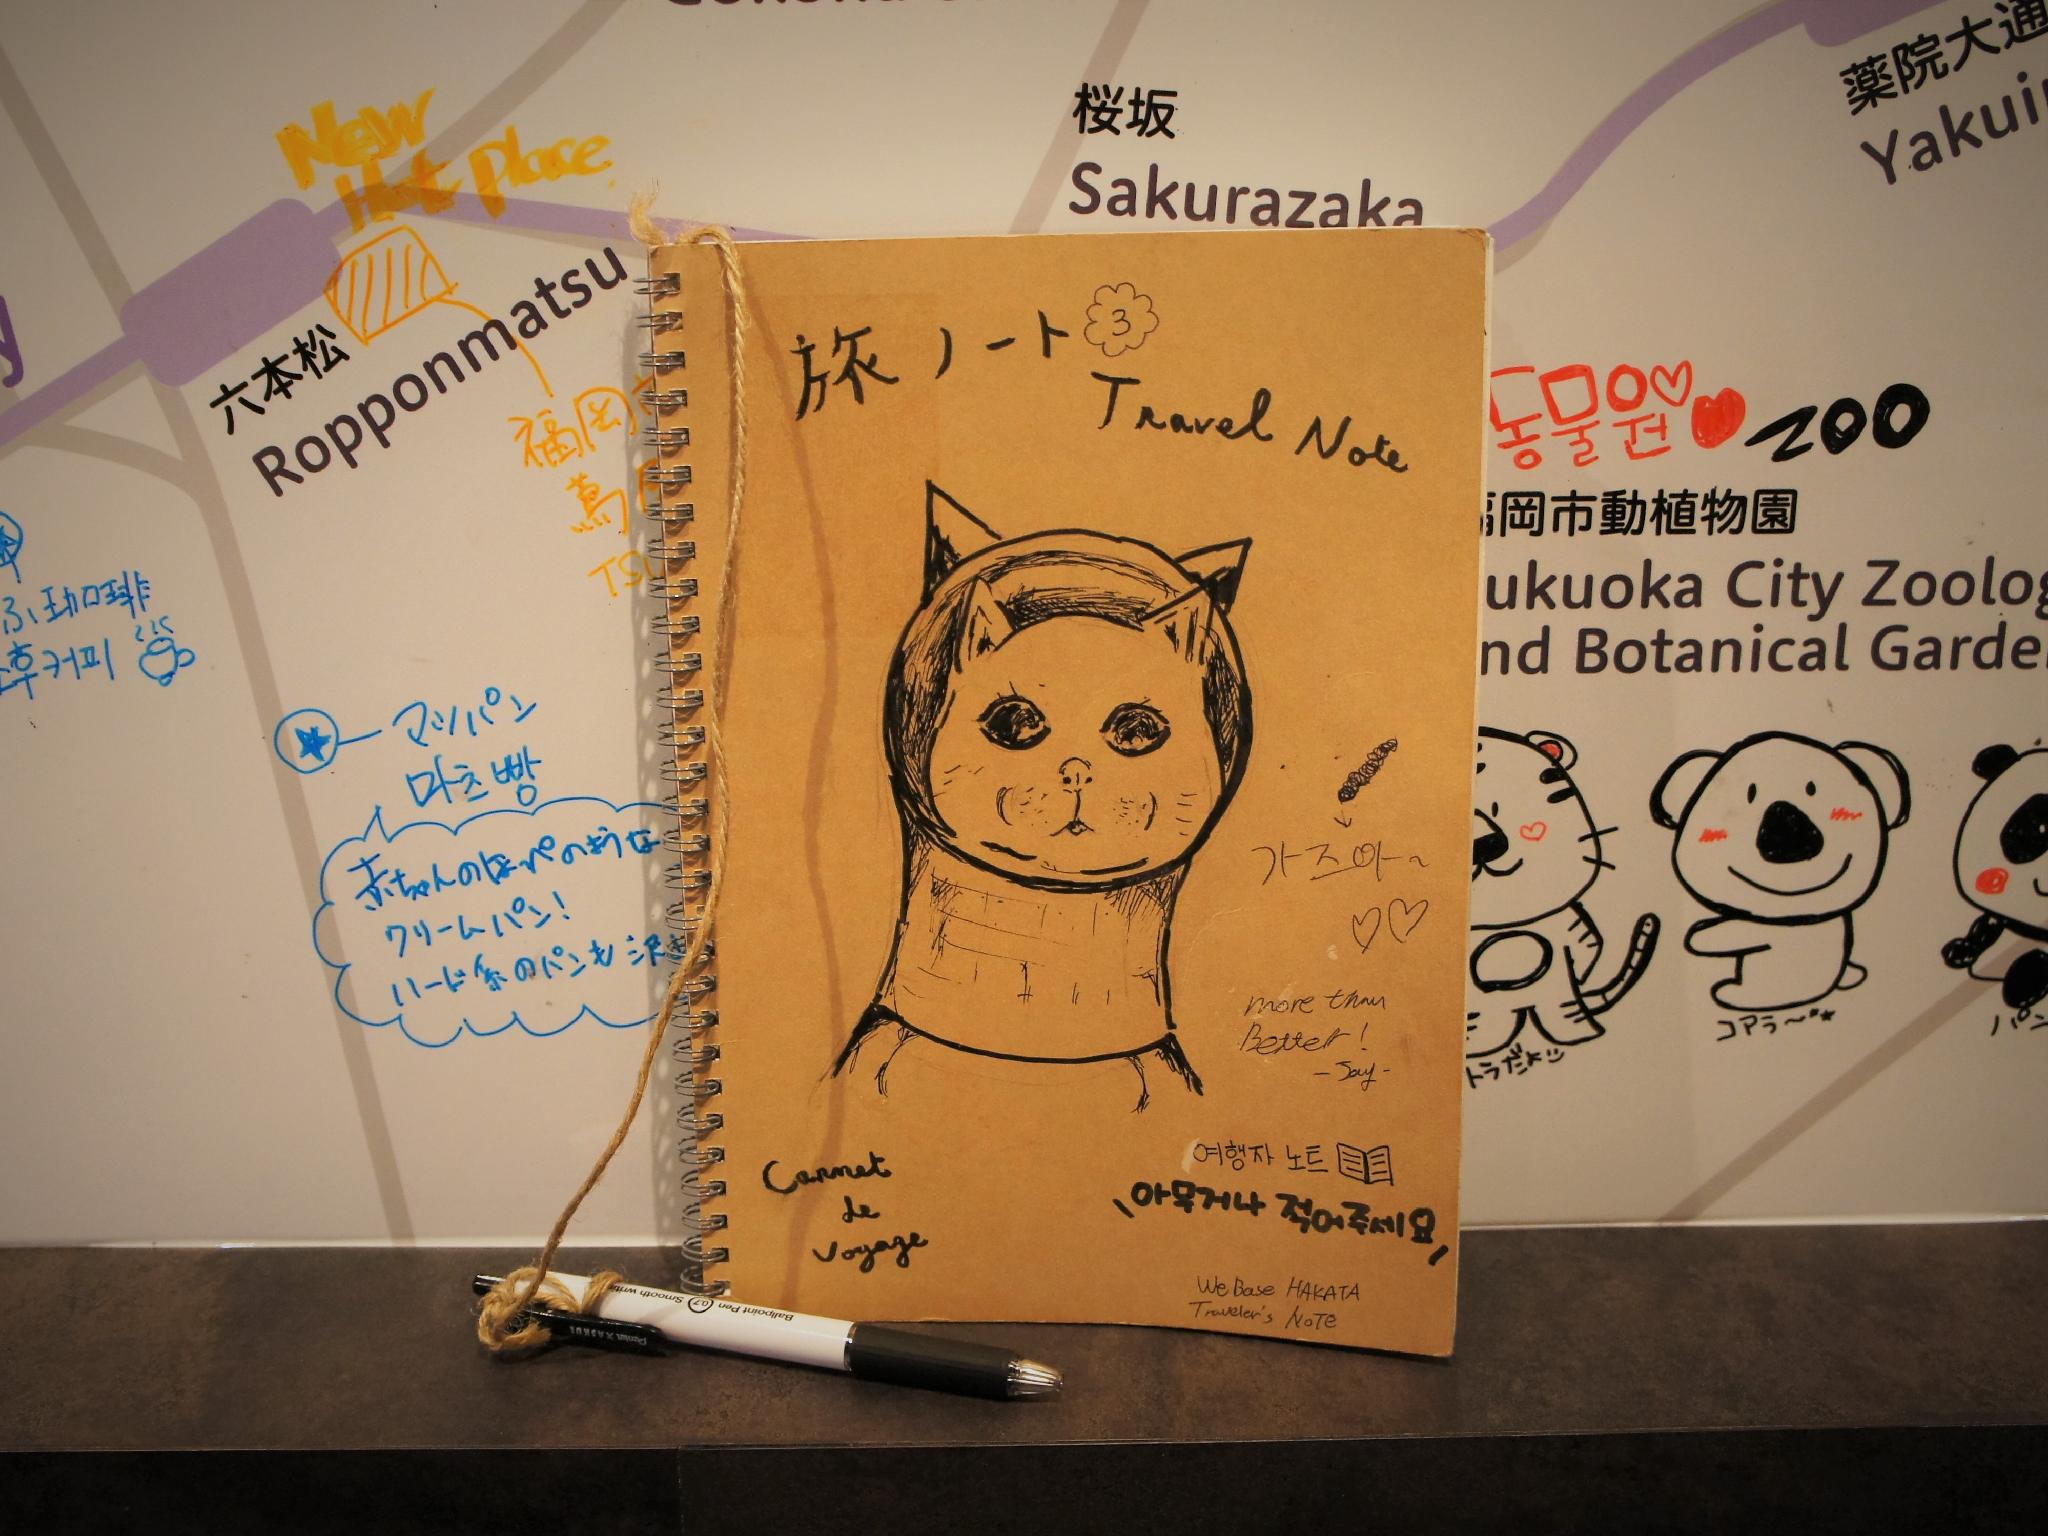 New
Hot Place.
六本松
Ropponmatsu
桜坂
Sakurazaka
薬院大通
Yakuin
福岡
TSU
ふ珈琲
커피
マツパン
마츠빵
赤ちゃんのほっぺのような
クリームパン!
ハード系のパンも沢
旅ノート 3
Travel Note
가즈아~
more than
Better!
-Say-
Carnet
de
voyage
여행자 노트
아무거나 적어주세요
We Base HAKATA
Traveler's NOTE
Ballpoint Pen 0.7 Smooth writi
Pentel × ASKUL
동물원 ZOO
福岡市動植物園
ukuoka City Zoolog
nd Botanical Garde
トラだよ
コアラ~
パン